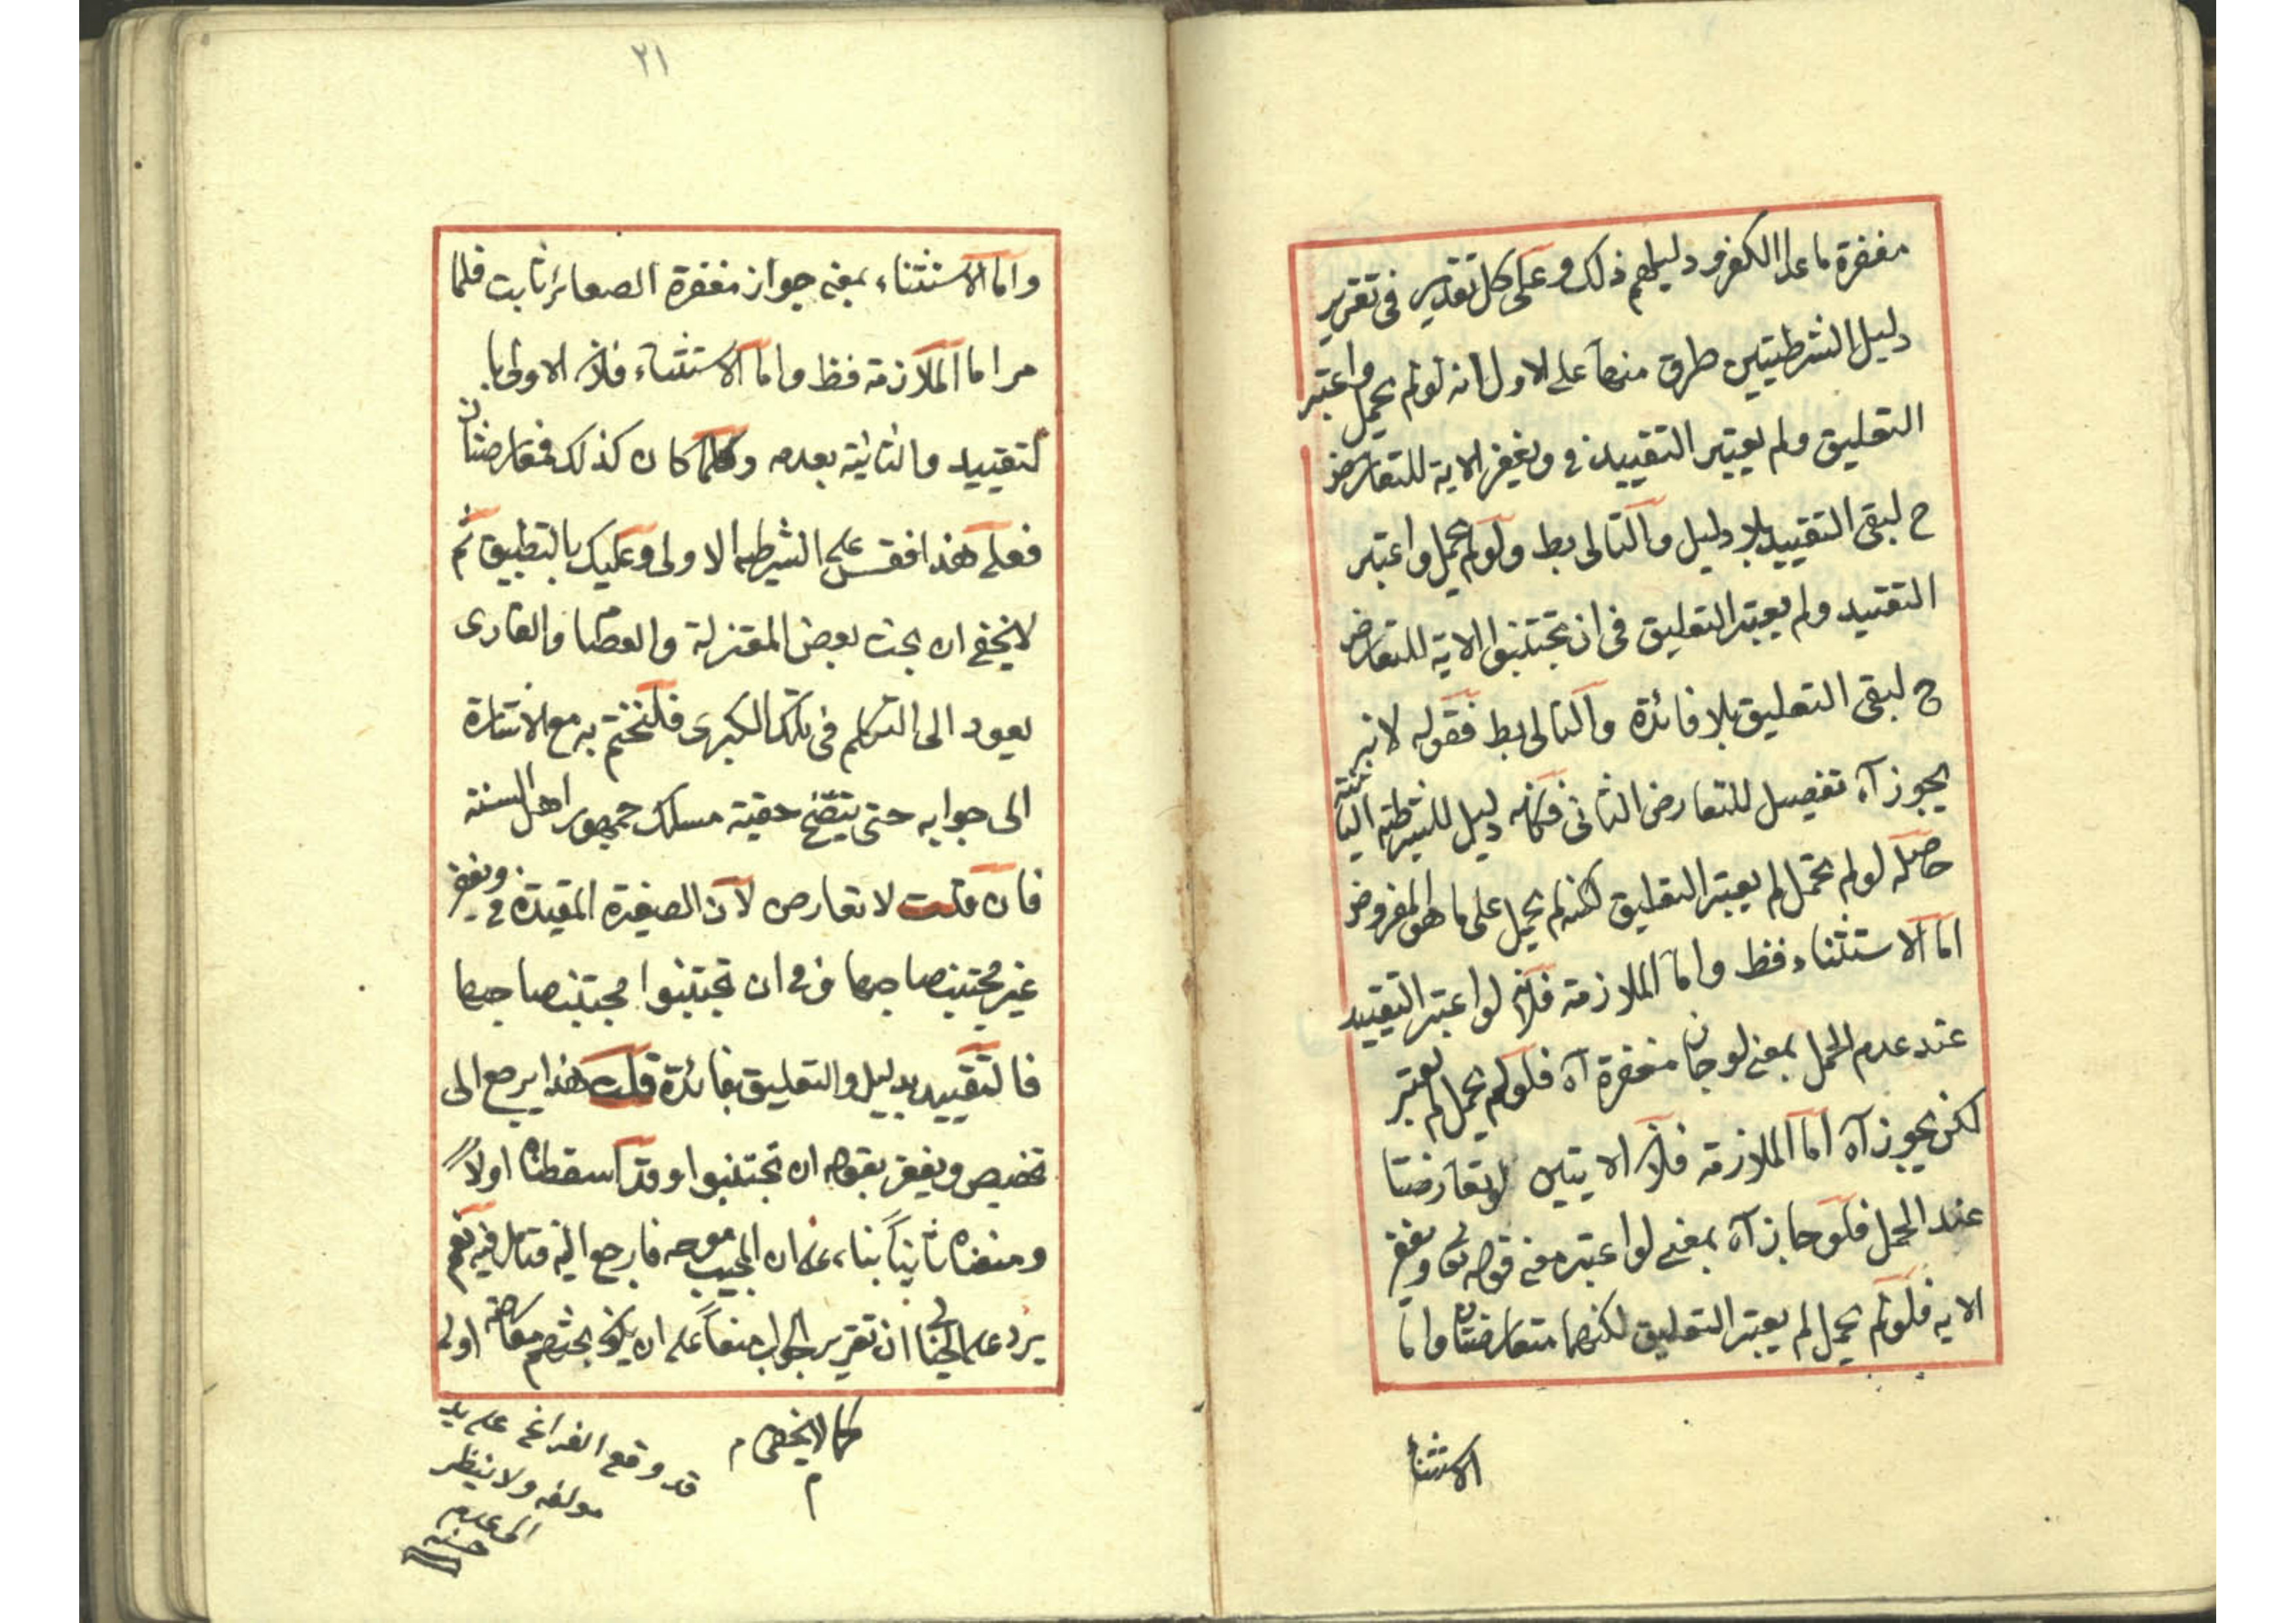 مغفرة ما عدا الكفر ودليلهم ذلك وعلى كل تقدير في تقرير
دليل الشرطيتين طرق منها على الاول انه لو لم يحمل واعتبر
التعليق ولم يعتبر التقييد في ويغفر الاية للتعارض
ح لبقى التقييد بلا دليل والتالى بط ولو لم يحمل واعتبر
التقييد ولم يعتبر التعليق في ان تجتنبوا الاية للتعارض
ح لبقى التعليق بلا فائدة والتالى بط فقوله لانه
يجوز آه تفصيل للتعارض الثانى فكانه دليل للشرطية الثانية
حاصله لو لم يحمل لم يعتبر التعليق لكنه لم يحمل على ما هو المفروض
اما الاستثناء فظ واما الملازمة فلانه لو اعتبر التقييد
عند عدم الحمل بمعنى لو جاز مغفرة آه فلو لم يحمل لم يعتبر
لكن يجوز آه اما الملازمة فلان الايتين لو تعارضتا
عند الحمل فلو جاز آه بمعنى لو اعتبر في قوله تع ويغفر
الايه فلو لم يحمل لم يعتبر التعليق لكنهما متعارضتان واما
الاستثنا
٢١
واما الاستثناء بمعنى جواز مغفرة الصغائر ثابت فلما
مر اما الملازمة فظ واما الاستثناء فلان الاولى با
لتقييد والثانية بعدمه وكلما كان كذلك فتعارضتان
فعلى هذا فقس على الشرطيه الاولى وعليك بالتطبيق ثم
لا يخفى ان بحث بعض المعتزلة والعصام والقارى
يعود الى التكلم في تلك الكبرى فلنختم به مع الاشارة
الى جوابه حتى يتضح حقية مسلك جمهور اهل السنة
فان قلت لا تعارض لان الصغيرة المقيدة في ويغفر
غير مجتنب صاحبها وفي ان تجتنبوا مجتنب صاحبها
فالتقييد بدليل والتعليق بفائدة قلت هذا يرجع الى
تخصيص ويغفر بقوله ان تجتنبوا وقد اسقطناه اولاً
ومنعناه ثانياً بناء على ان المجيب موجه فارجع اليه فتامل فيه نعم
يرد على الخيالى ان تقرير الجواب منعاً على ان يكون بحثهم معارضة اولى
كما لا يخفى م
م
قد وقع الفراغ على يد
مولفه ولا ينظر
الى عدم